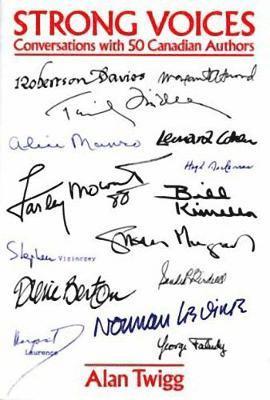 STRONG VOICES
Conversations with 50 Canadian Authors
Robertson Davies
Margaret Atwood
Timothy Findley
Alice Munro
Leonard Cohen
Hugh MacLennan
Farley Mowat
Bill
Kinsella
Susan Musgrave
Stephen Vizinczey
Pierre Berton
Norman Levine
Margaret
Laurence
George Faludy
Alan Twigg